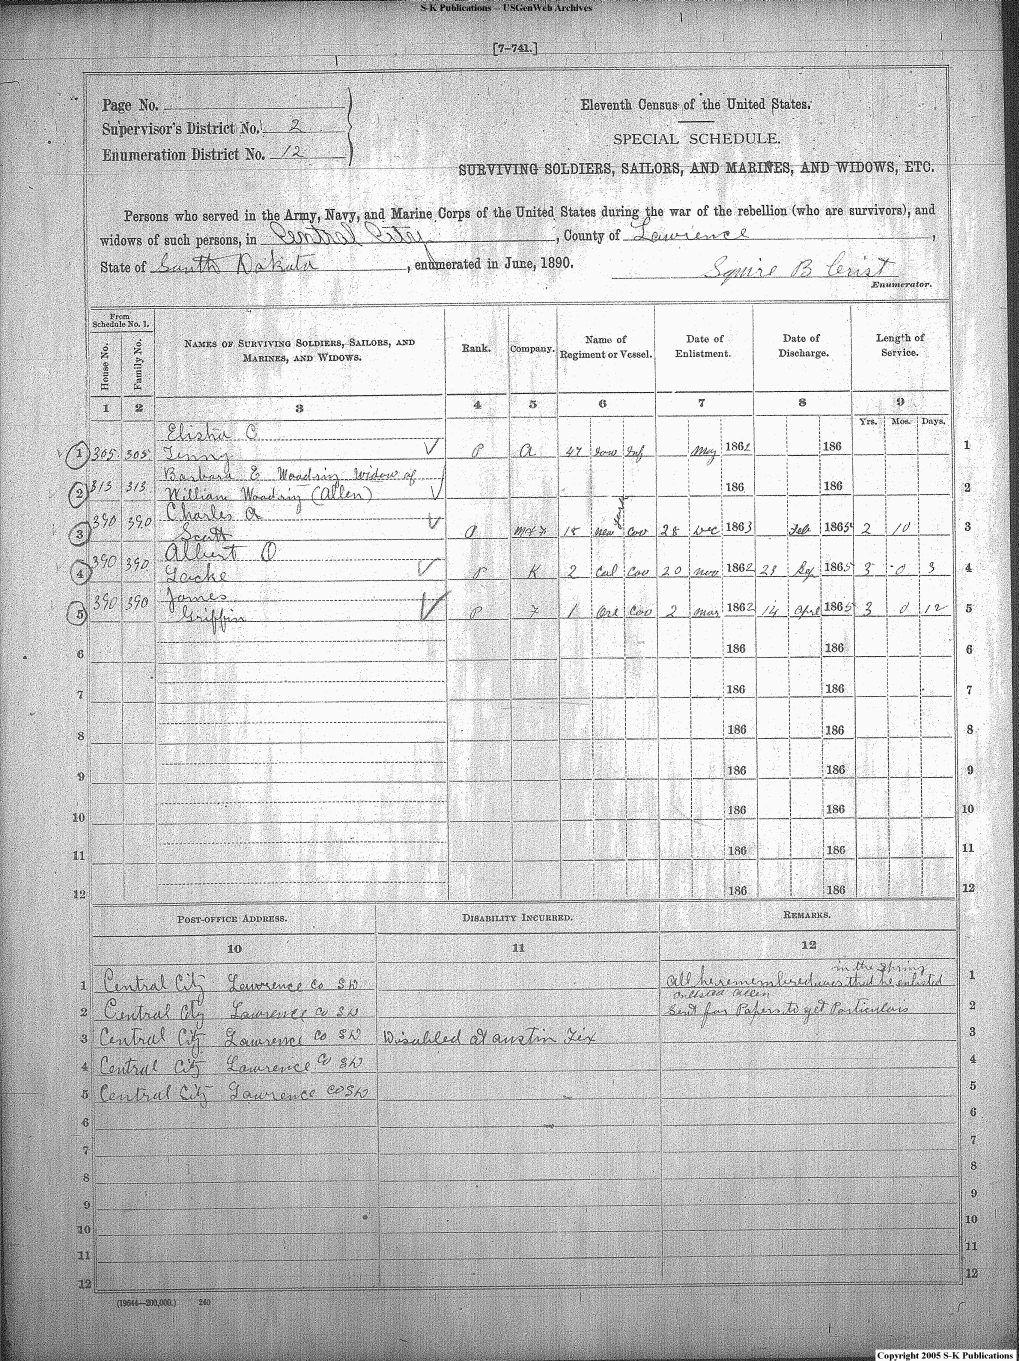 S-K Publications – USGenWeb Archives
[7-741.]
Page No.
Supervisor's District No. 2
Enumeration District No. 12
Eleventh Census of the United States.
SPECIAL SCHEDULE.
SURVIVING SOLDIERS, SAILORS, AND MARINES, AND WIDOWS, ETC.
Persons who served in the Army, Navy, and Marine Corps of the United States during the war of the rebellion (who are survivors), and
widows of such persons, in Central City, County of Lawrence,
State of South Dakota, enumerated in June, 1890.
Squire B
Enumerator.
From Schedule No. 1.
House No. Family No. NAMES OF SURVIVING SOLDIERS, SAILORS, AND MARINES, AND WIDOWS. Rank. Company. Name of Regiment or Vessel. Date of Enlistment. Date of Discharge. Length of Service.
1 2 3 4 5 6 7 8 9
Yrs. Mos. Days.
Elisha C
1 305 305 P A 47 Iow Inf May 186 186 1
Barbara E Woodring Widow of
2 313 313 William Woodring (Allen) 186 186 2
Charles A
3 390 390 Scott 18 New York Cav 28 Dec 1863 Feb 1865 2 10 3
Albert O
4 390 390 P K 2 Cal Cav 20 Nov 1862 23 1865 3 0 3 4
James
5 390 390 Griffin P 7 1 Cav 2 Mar 1862 14 Apr 1865 3 0 12 5
6 186 186 6
7 186 186 7
8 186 186 8
9 186 186 9
10 186 186 10
11 186 186 11
12 186 186 12
POST-OFFICE ADDRESS. DISABILITY INCURRED. REMARKS.
10 11 12
in the Spring
1 Central City Lawrence Co SD All he remembered was that he enlisted 1
enlisted Allen
2 Central City Lawrence Co SD Sent for Papers to get Particulars 2
3 Central City Lawrence Co SD Disabled at Austin Tex 3
4 Central City Lawrence Co SD 4
5 Central City Lawrence Co SD 5
6 6
7 7
8 8
9 9
10 10
11 11
12 12
(19644—200,000.) 240
Copyright 2005 S-K Publications